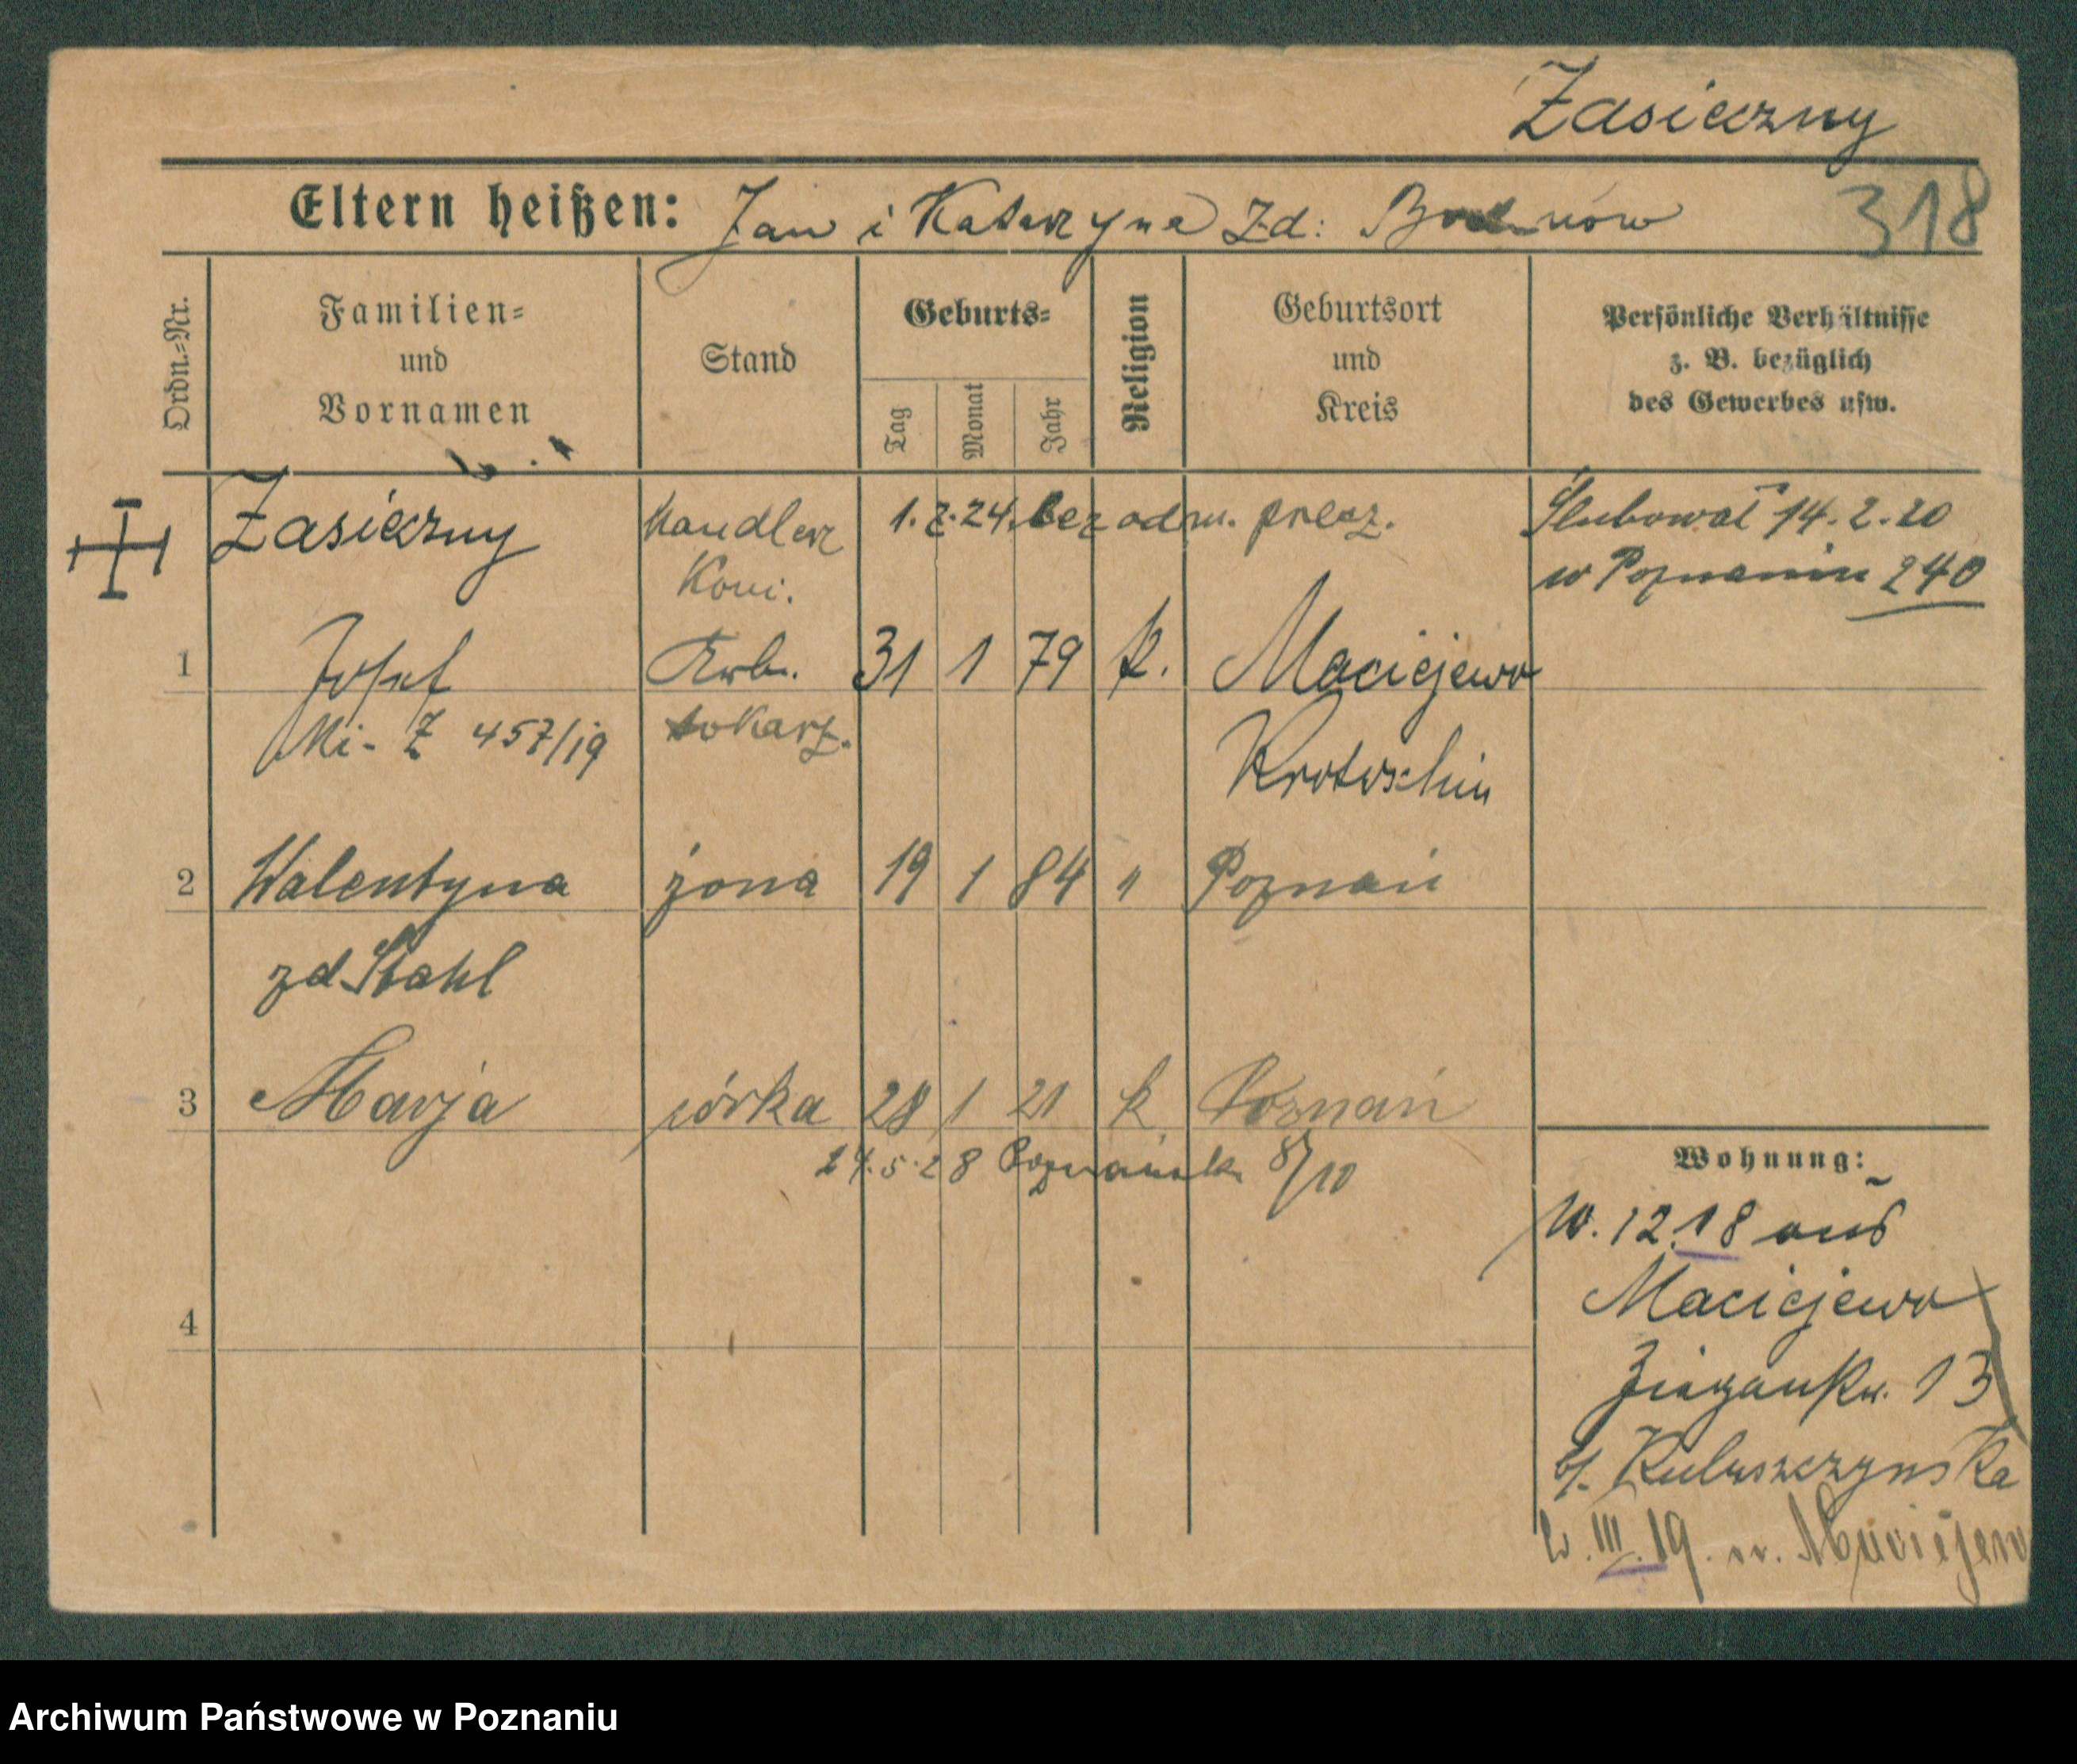 Zasieczny
Eltern heißen: Jan i Katarzyna zd:
318
Ordn.=Nr.
Familien=
und
Vornamen
Stand
Geburts=
Tag
Monat
Jahr
Religion
Geburtsort
und
Kreis
Persönliche Verhältnisse
z. B. bezüglich
des Gewerbes usw.
Zasieczny
handlerz
Koni.
1.2.24. bez odm. precz.
Ślubował 14.2.20
w Poznaniu 240
1 Josef Arb. 31 1 79 k. Maciejewo
Mi- Z 457/19 tokarz. Krotoschin
2 Walentyna żona 19 1 84 " Poznań
zd Stahl
3 Marja córka 28 1 21 k Poznań
24.5.28 Poznańsk. 8/10
4
Wohnung:
W. 12.18 aus
Maciejewo
13
b/.
W. III. 19. n. Maciejew
Archiwum Państwowe w Poznaniu